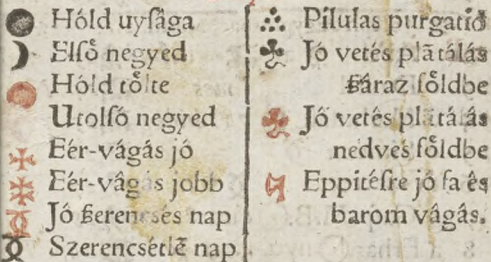 Hóld uyſága
Elſo̊ negyed
Hóld to̊lte
Utolſó negyed
Eér-vágás jó
Eér-vágás jobb
Jó ßerencsés nap
Szerencsétlẽ nap
Pilulas purgatió
Jó vetés plãtálás
ßáraz fo̊ldbe
Jó vetés plãtálás
nedvés fo̊ldbe
Eppitéſre jó fa és
barom vágás.